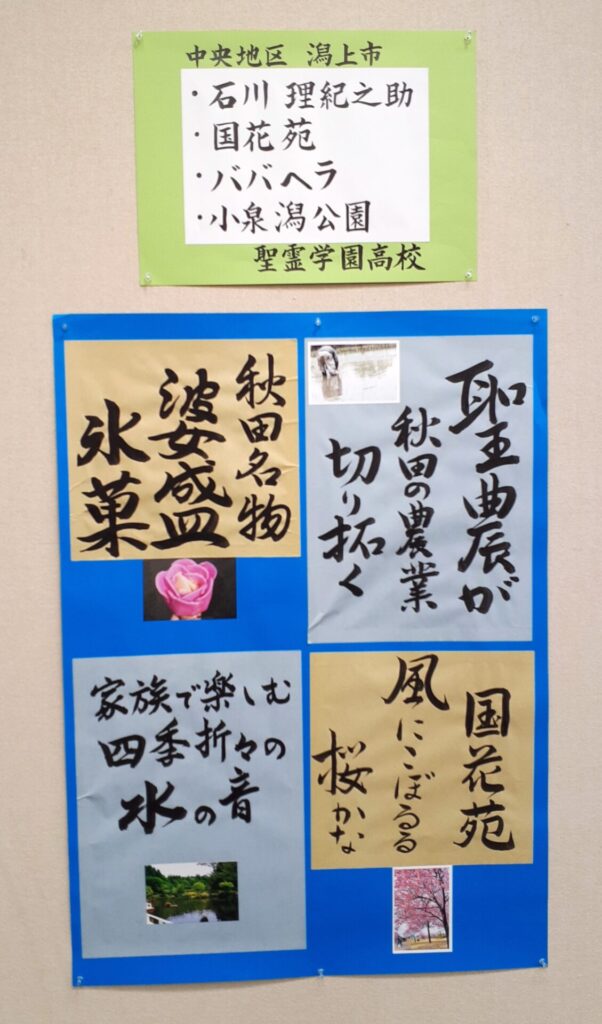 中央地区 潟上市
・石川 理紀之助
・国花苑
・ババヘラ
・小泉潟公園
聖霊学園高校
聖農が
秋田の農業
切り拓く
秋田名物
婆盛
氷菓
国花苑
風にこぼるる
桜かな
家族で楽しむ
四季折々の
水の音